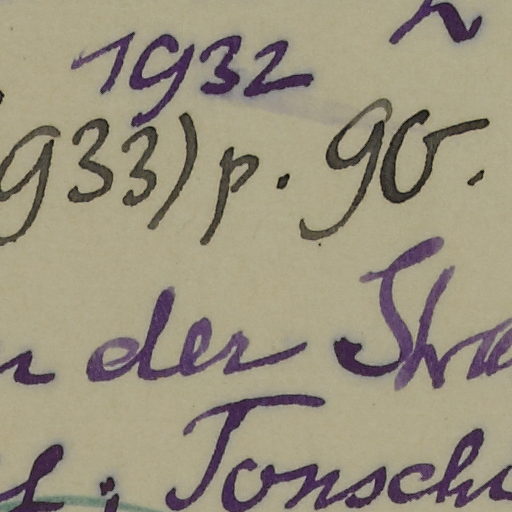 1932
933) p. 90.
der Stra
; Tonsch